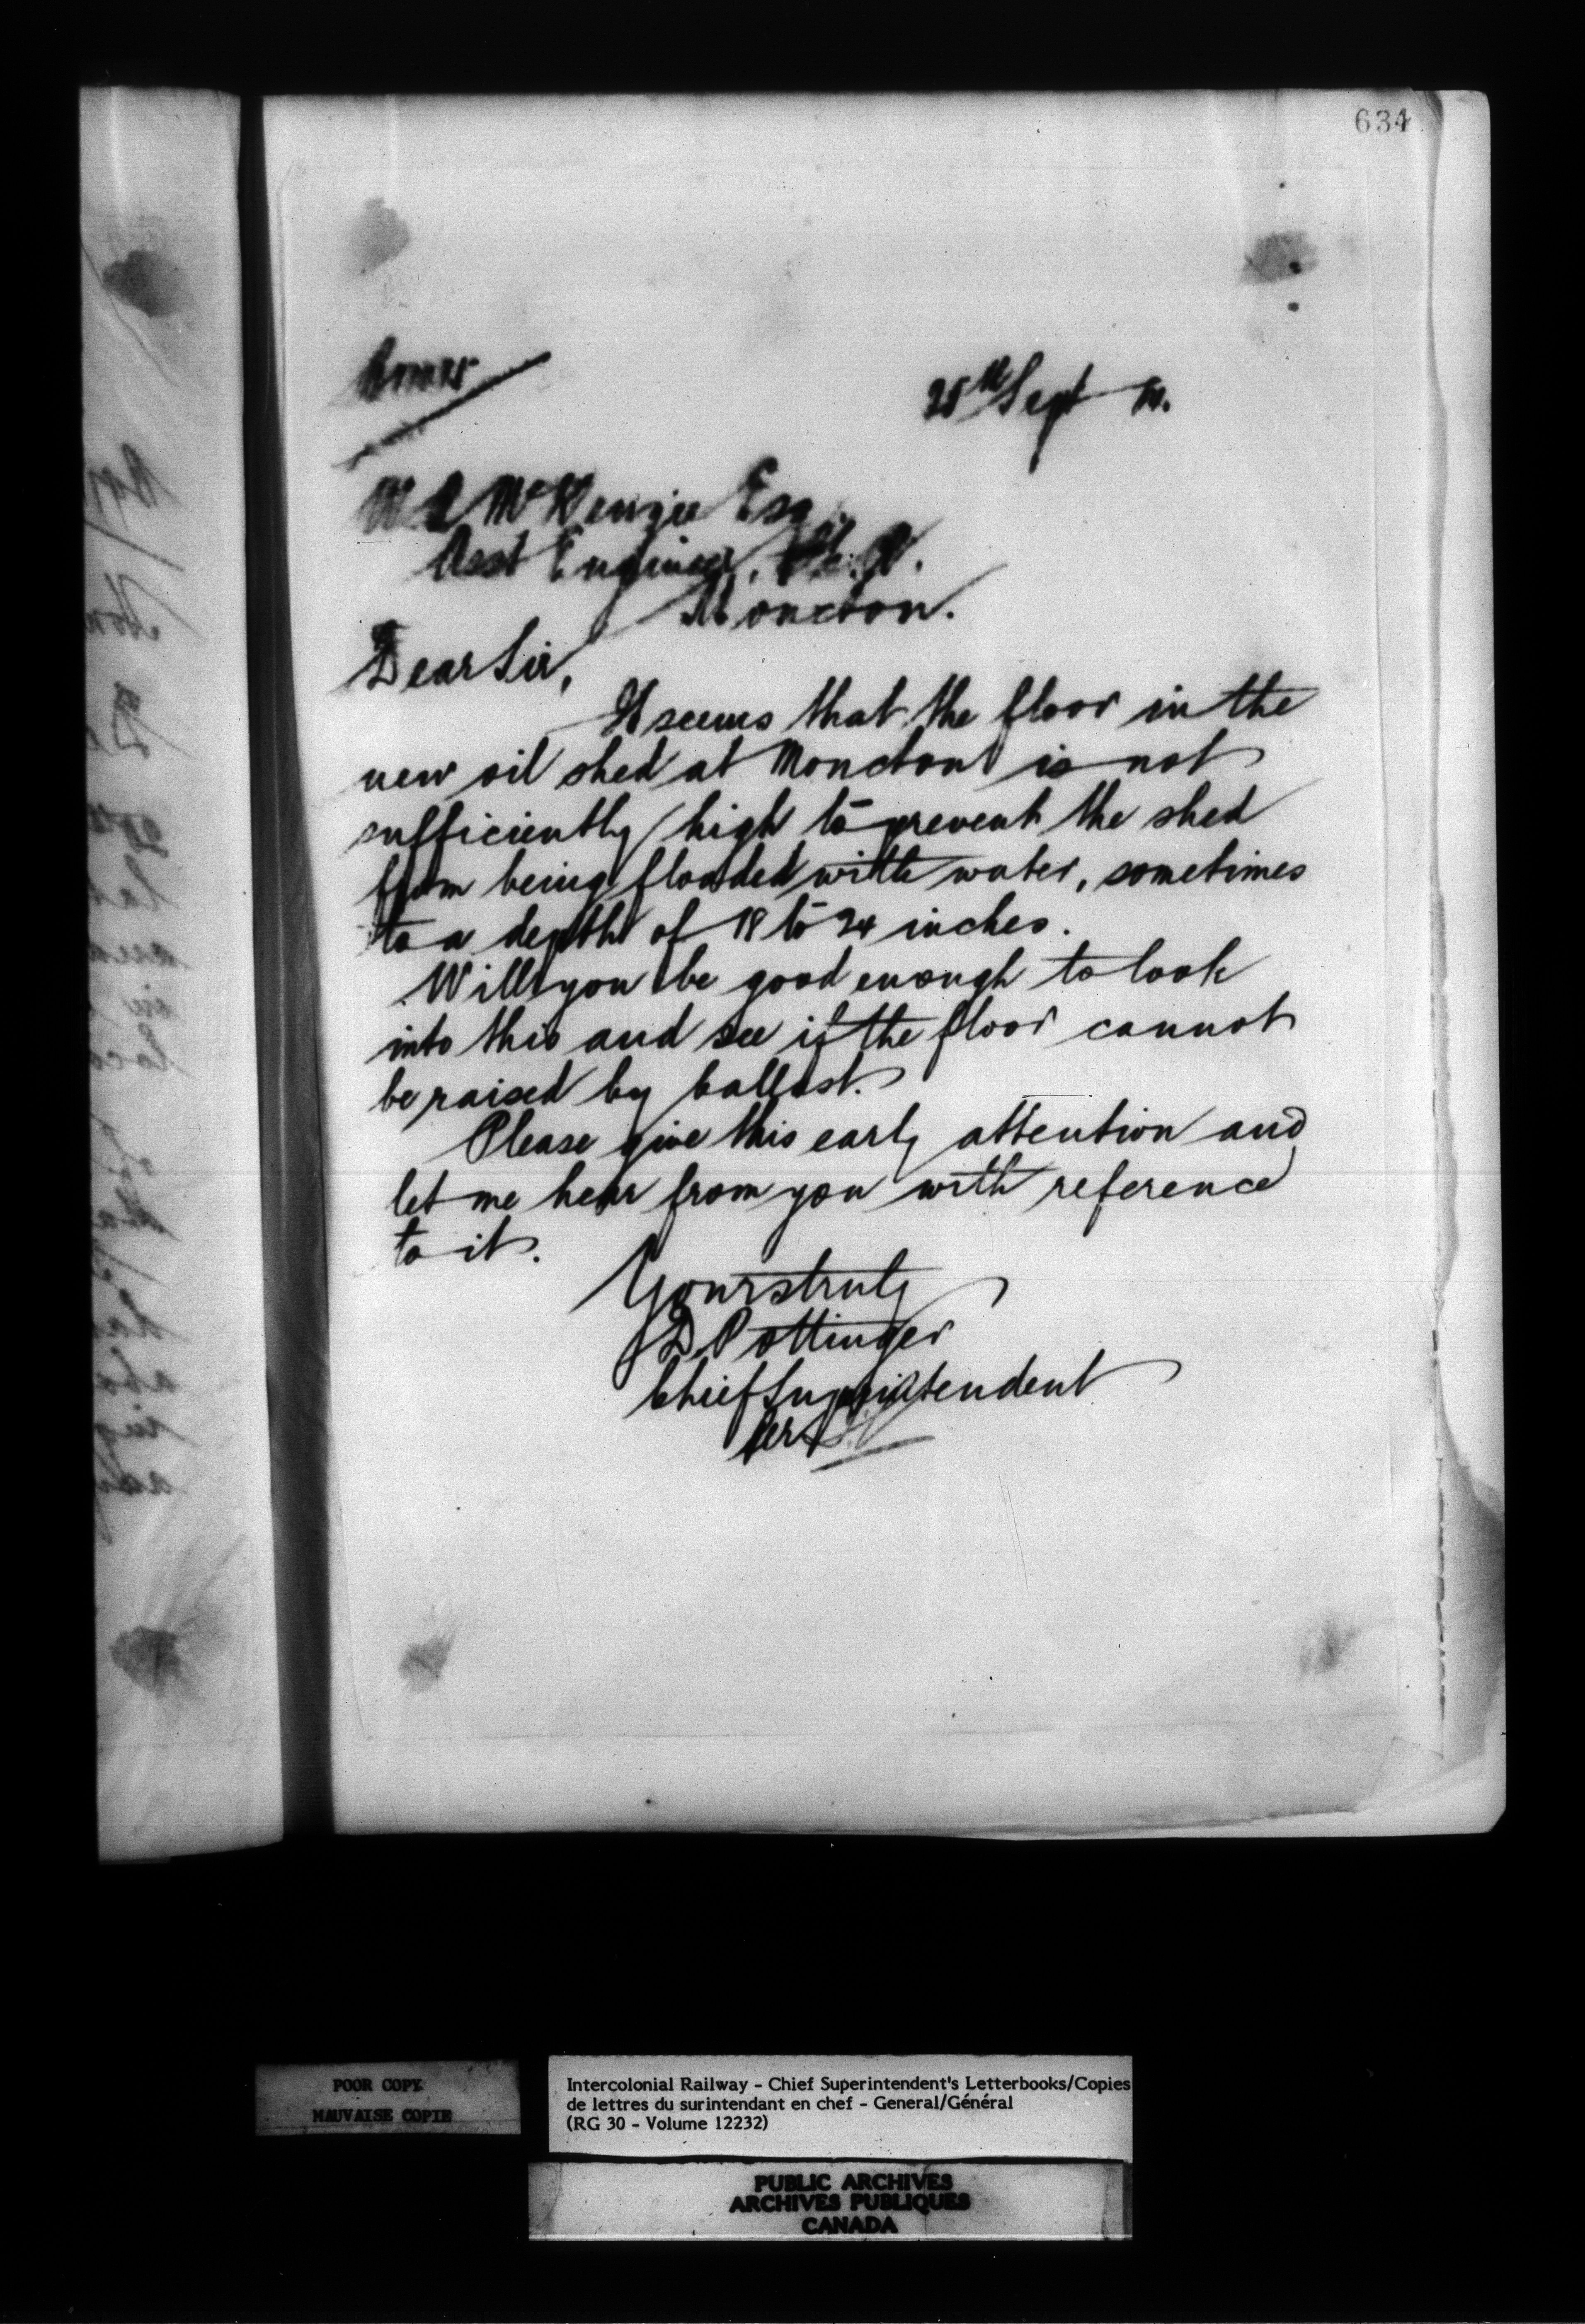 634
25th Sept
W McKenzie Esq
Asst Engineer,
Moncton.
Dear Sir,
It seems that the floor in the
new oil shed at Moncton is not
sufficiently high to prevent the shed
from being flooded with water, sometimes
to a depth of 18 to 24 inches.
Will you be good enough to look
into this and see if the floor cannot
be raised by ballast.
Please give this early attention and
let me hear from you with reference
to it.
Yours truly
D. Pottinger
Chief Superintendent
Per
POOR COPY
MAUVAISE COPIE
Intercolonial Railway - Chief Superintendent's Letterbooks/Copies
de lettres du surintendant en chef - General/Général
(RG 30 - Volume 12232)
PUBLIC ARCHIVES
ARCHIVES PUBLIQUES
CANADA